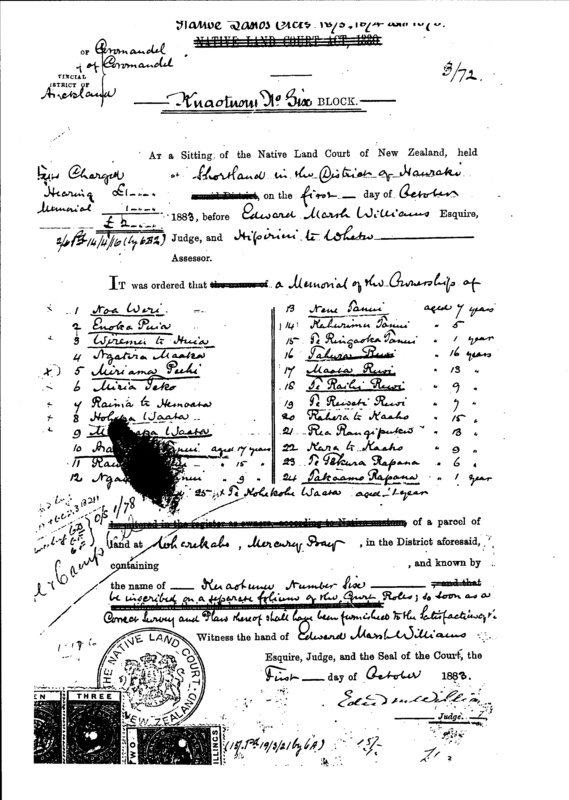 Native Lands Acts 1873, 1874 and 1878.
NATIVE LAND COURT ACT, 1880
OF Coromandel
of Coromandel
VINCIAL
DISTRICT OF
Auckland
3/72.
Kuaotunu No Six BLOCK.
AT a Sitting of the Native Land Court of New Zealand, held
at Shortland in the District of Hauraki
said District, on the first day of October
1883, before Edward Marsh Williams Esquire,
Judge, and Hipirini te Whetu
Assessor.
Fees Charged
Hearing £1
Memorial 1
£2
IT was ordered that the names of a Memorial of the Ownership of
1 Noa Weri
2 Enoka Puia
3 Wiremu te Huia
4 Ngatira Maaka
5 Miriama Peehi
6 Miria Teko
7 Raima te Hemoata
8 Waata
9 Waata
10 aged 17 years
11 " 15 "
12 " 9 "
13 Nene Tanui aged 7 years
14 Kahurimu Tanui " 5 "
15 Te Ringaoka Tanui " 1 year
16 Tahura Rewi " 16 years
17 Maata Rewi " 13 "
18 Te Raihi Rewi " 9 "
19 Te Reweti Rewi " 7 "
20 Rahora te Kaaho " 15 "
21 Rea Rangiputewa " 13 "
22 Kara te Kaaho " 9 "
23 Te Takura Rapana " 6 "
24 Takoamo Rapana " 1 year
25 Te Kohekohe Waata aged 1 year
be entered in the register as owners, according to Native custom, of a parcel of
land at Wharekaho, Mercury Bay, in the District aforesaid,
containing , and known by
the name of Kuaotunu Number Six and that
be inscribed on a separate folium of the Court Rolls; so soon as a
Correct Survey and Plan thereof shall have been furnished to the Satisfaction of
Witness the hand of Edward Marsh Williams
Esquire, Judge, and the Seal of the Court, the
First day of October 1883.
Judge.
THE NATIVE LAND COURT
NEW ZEALAND
THREE
TWO
SHILLINGS
15/-